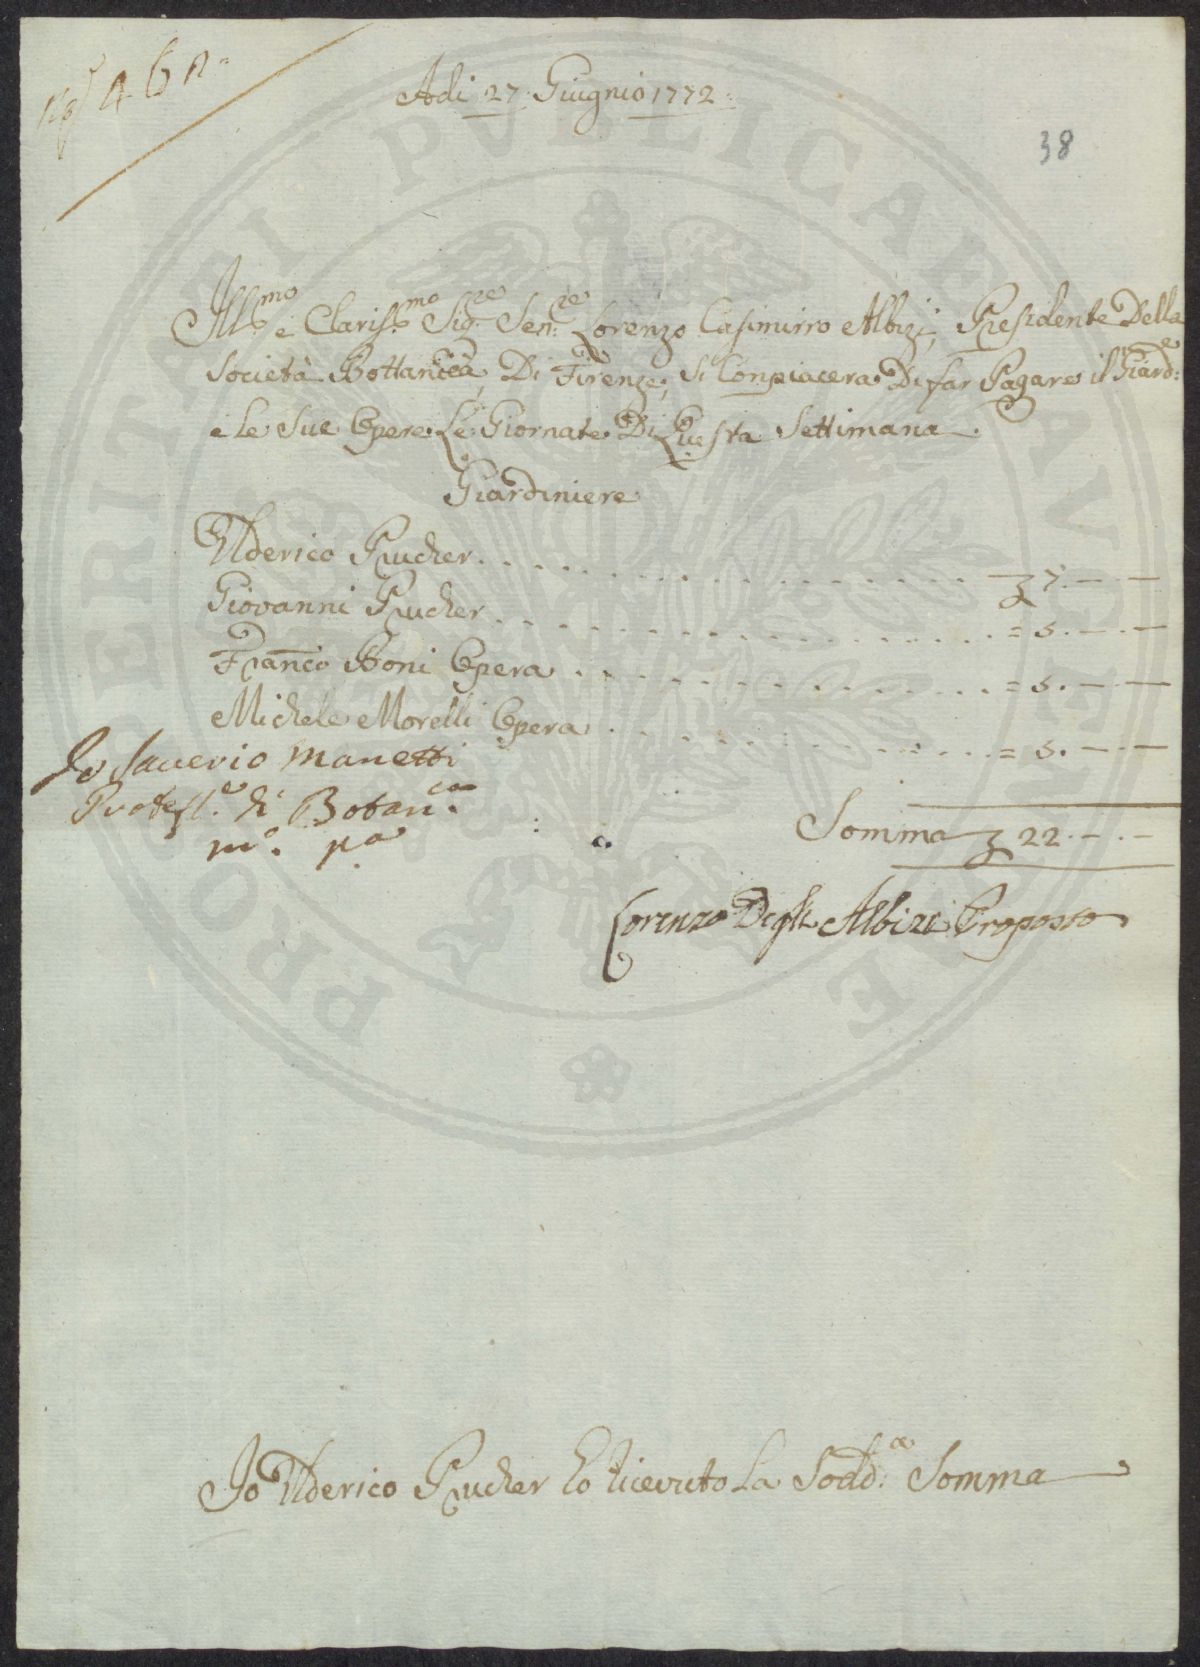 462
Adi 27 Giugnio 1772
38
Ill.mo e Claris.mo Sig.re Sen.re Lorenzo Casimirro Albizi, Presidente Della
Società Bottanica, Di Firenze, Si Conpiacera Di far Pagare il Giard:e
e le Sue Opere Le Giornate Di Questa Settimana
Giardiniere
Ulderico Prucher ƺ 7.—.—
Giovanni Prucher = 5.—.—
Franco Boni Opera = 5.—.—
Michele Morelli Opera = 5.—.—
Io Saverio Manetti
Profess.e di Botan.ca
m.o p.a
Somma ƺ 22.—.—
Lorenzo Degli Albizi Proposto
Io Ulderico Prucher ho ricevuto La Sodd.a Somma
PRO PERITATI PVBLICAE AVGENDAE